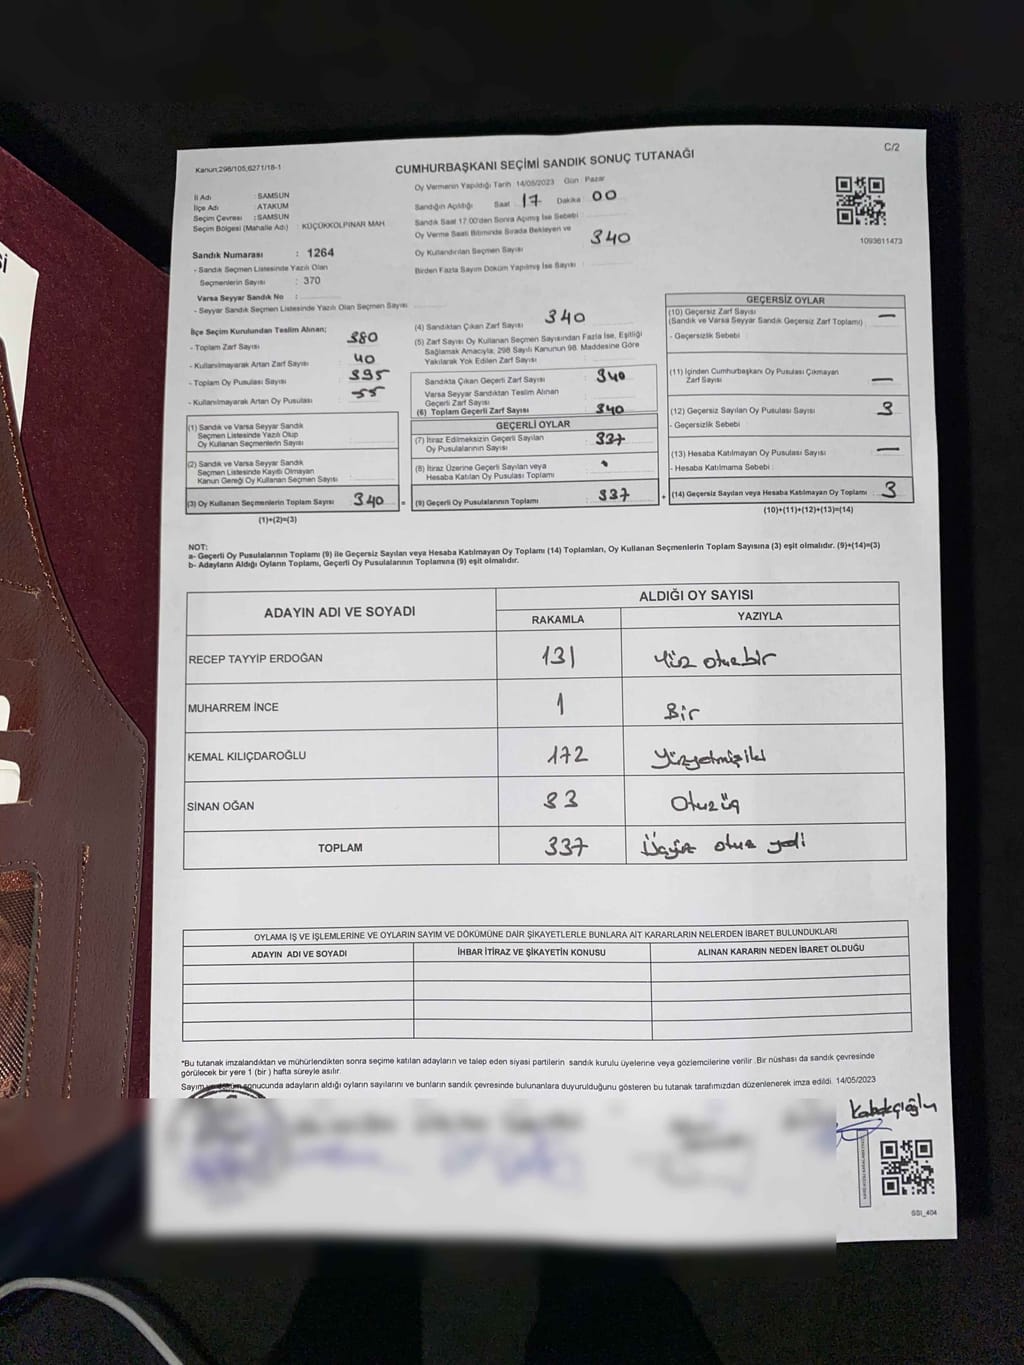 C/2
Kanun;298/105,6271/18-1
CUMHURBAŞKANI SEÇİMİ SANDIK SONUÇ TUTANAĞI
Oy Vermenin Yapıldığı Tarih 14/05/2023 Gün : Pazar
İl Adı : SAMSUN
İlçe Adı : ATAKUM
Seçim Çevresi : SAMSUN
Seçim Bölgesi (Mahalle Adı) : KÜÇÜKKOLPINAR MAH
Sandığın Açıldığı Saat : 17 Dakika : 00
Sandık Saat 17:00'den Sonra Açımış İse Sebebi
Oy Verme Saati Bitiminde Sırada Bekleyen ve
Oy Kullandırılan Seçmen Sayısı : 340
Birden Fazla Sayım Döküm Yapılmış İse Sayısı
1093611473
Sandık Numarası : 1264
- Sandık Seçmen Listesinde Yazılı Olan
Seçmenlerin Sayısı : 370
Varsa Seyyar Sandık No :
- Seyyar Sandık Seçmen Listesinde Yazılı Olan Seçmen Sayısı
İlçe Seçim Kurulundan Teslim Alınan;
- Toplam Zarf Sayısı : 380
- Kullanılmayarak Artan Zarf Sayısı : 40
- Toplam Oy Pusulası Sayısı : 395
- Kullanılmayarak Artan Oy Pusulası : 55
(1) Sandık ve Varsa Seyyar Sandık
Seçmen Listesinde Yazılı Olup
Oy Kullanan Seçmenlerin Sayısı
(2) Sandık ve Varsa Seyyar Sandık
Seçmen Listesinde Kayıtlı Olmayan
Kanun Gereği Oy Kullanan Seçmen Sayısı
(3) Oy Kullanan Seçmenlerin Toplam Sayısı 340 =
(1)+(2)=(3)
(4) Sandıktan Çıkan Zarf Sayısı 340
(5) Zarf Sayısı Oy Kullanan Seçmen Sayısından Fazla İse, Eşitliği
Sağlamak Amacıyla; 298 Sayılı Kanunun 98. Maddesine Göre
Yakılarak Yok Edilen Zarf Sayısı
Sandıkta Çıkan Geçerli Zarf Sayısı 340
Varsa Seyyar Sandıktan Teslim Alınan
Geçerli Zarf Sayısı
(6) Toplam Geçerli Zarf Sayısı 340
GEÇERLİ OYLAR
(7) İtiraz Edilmeksizin Geçerli Sayılan
Oy Pusulalarının Sayısı 337
(8) İtiraz Üzerine Geçerli Sayılan veya
Hesaba Katılan Oy Pusulası Toplamı
(9) Geçerli Oy Pusulalarının Toplamı 337 +
GEÇERSİZ OYLAR
(10) Geçersiz Zarf Sayısı
(Sandık ve Varsa Seyyar Sandık Geçersiz Zarf Toplamı) : —
- Geçersizlik Sebebi :
(11) İçinden Cumhurbaşkanı Oy Pusulası Çıkmayan
Zarf Sayısı —
(12) Geçersiz Sayılan Oy Pusulası Sayısı 3
- Geçersizlik Sebebi :
(13) Hesaba Katılmayan Oy Pusulası Sayısı —
- Hesaba Katılmama Sebebi :
(14) Geçersiz Sayılan veya Hesaba Katılmayan Oy Toplamı 3
(10)+(11)+(12)+(13)=(14)
NOT:
a- Geçerli Oy Pusulalarının Toplamı (9) ile Geçersiz Sayılan veya Hesaba Katılmayan Oy Toplamı (14) Toplamları, Oy Kullanan Seçmenlerin Toplam Sayısına (3) eşit olmalıdır. (9)+(14)=(3)
b- Adayların Aldığı Oyların Toplamı, Geçerli Oy Pusulalarının Toplamına (9) eşit olmalıdır.
ADAYIN ADI VE SOYADI
ALDIĞI OY SAYISI
RAKAMLA YAZIYLA
RECEP TAYYİP ERDOĞAN 131 Yüz otuzbir
MUHARREM İNCE 1 Bir
KEMAL KILIÇDAROĞLU 172 Yüzyetmişiki
SİNAN OĞAN 33 Otuzüç
TOPLAM 337 Üçyüz otuz yedi
OYLAMA İŞ VE İŞLEMLERİNE VE OYLARIN SAYIM VE DÖKÜMÜNE DAİR ŞİKAYETLERLE BUNLARA AİT KARARLARIN NELERDEN İBARET BULUNDUKLARI
ADAYIN ADI VE SOYADI İHBAR İTİRAZ VE ŞİKAYETİN KONUSU ALINAN KARARIN NEDEN İBARET OLDUĞU
*Bu tutanak imzalandıktan ve mühürlendikten sonra seçime katılan adayların ve talep eden siyasi partilerin sandık kurulu üyelerine veya gözlemcilerine verilir .Bir nüshası da sandık çevresinde
görülecek bir yere 1 (bir ) hafta süreyle asılır.
Sayım ve döküm sonucunda adayların aldığı oyların sayılarını ve bunların sandık çevresinde bulunanlara duyurulduğunu gösteren bu tutanak tarafımızdan düzenlenerek imza edildi. 14/05/2023
Kabakçıoğlu
SSI_404